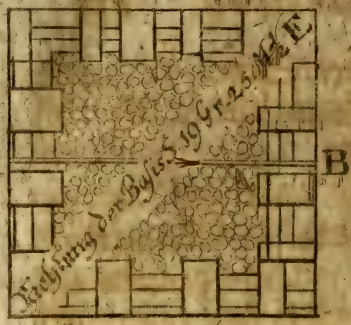 Ziehung der Basis S 19 Gr. 25. M. E
B